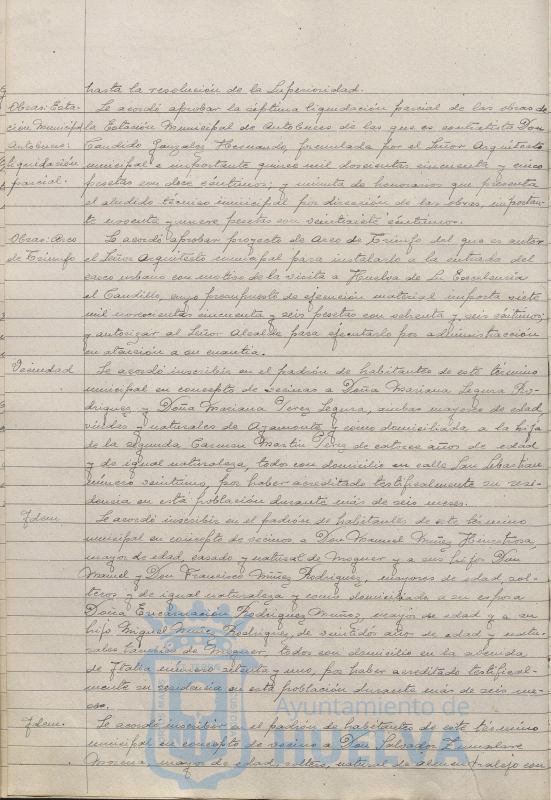 hasta la resolución de la Superioridad.
Obras: Esta- Se acordó aprobar la séptima liquidación parcial de las obras de
ción Municipal la Estación Municipal de Autobuses de las que es contratista Don
Autobuses: Candido González Hernando, formulada por el Señor Arquitecto
liquidación municipal e importante quince mil doscientas cincuenta y cinco
parcial. pesetas con doce céntimos; y minuta de honorarios que presenta
el aludido técnico municipal por dirección de las obras, importan-
te noventa y nueve pesetas con veintisiete céntimos.
Obras: Arco Se acordó aprobar proyecto de Arco de Triunfo del que es autor
de Triunfo el Señor Arquitecto municipal para instalarlo a la entrada del
casco urbano con motivo de la visita a Huelva de Su Excelencia
el Caudillo, cuyo presupuesto de ejecución material importa siete
mil novecientas cincuenta y seis pesetas con setenta y seis céntimos;
y autorizar al Señor Alcalde para ejecutarlo por administracción
en atención a su cuantía.
Vecindad Se acordó inscribir en el padrón de habitantes de este término
municipal en concepto de vecinas a Doña Mariana Segura Ro-
driguez y Doña Mariana Perez Segura, ambas mayores de edad,
viudas y naturales de Ayamonte y como domiciliada, a la hija
de la segunda Carmen Martin Perez de catorce años de edad
y de igual naturaleza, todos con domicilio en calle San Sebastian
número veintiuno, por haber acreditado testificalmente su resi-
dencia en esta población durante más de seis meses.
Idem. Se acordó inscribir en el padrón de habitantes de este término
municipal en concepto de vecinos a Don Manuel Muñez Hinestrosa,
mayor de edad, casado y natural de Moguer y a sus hijos Don
Manuel y Don Francisco Muñez Rodriguez, mayores de edad, sol-
teros y de igual naturaleza y como domiciliada a su esposa
Doña Encarnación Rodriguez Muñoz, mayor de edad y a su
hijo Miguel Muñez Rodriguez, de veintidos años de edad y natu-
rales también de Moguer, todos con domicilio en la avenida
de Italia número setenta y uno, por haber acreditado testifical-
mente su residencia en esta población durante más de seis me-
ses.
Idem. Se acordó inscribir en el padrón de habitantes de este término
municipal en concepto de vecino a Don Salvador
Moreno, mayor de edad, soltero, natural de Almendralejo con
Ayuntamiento de